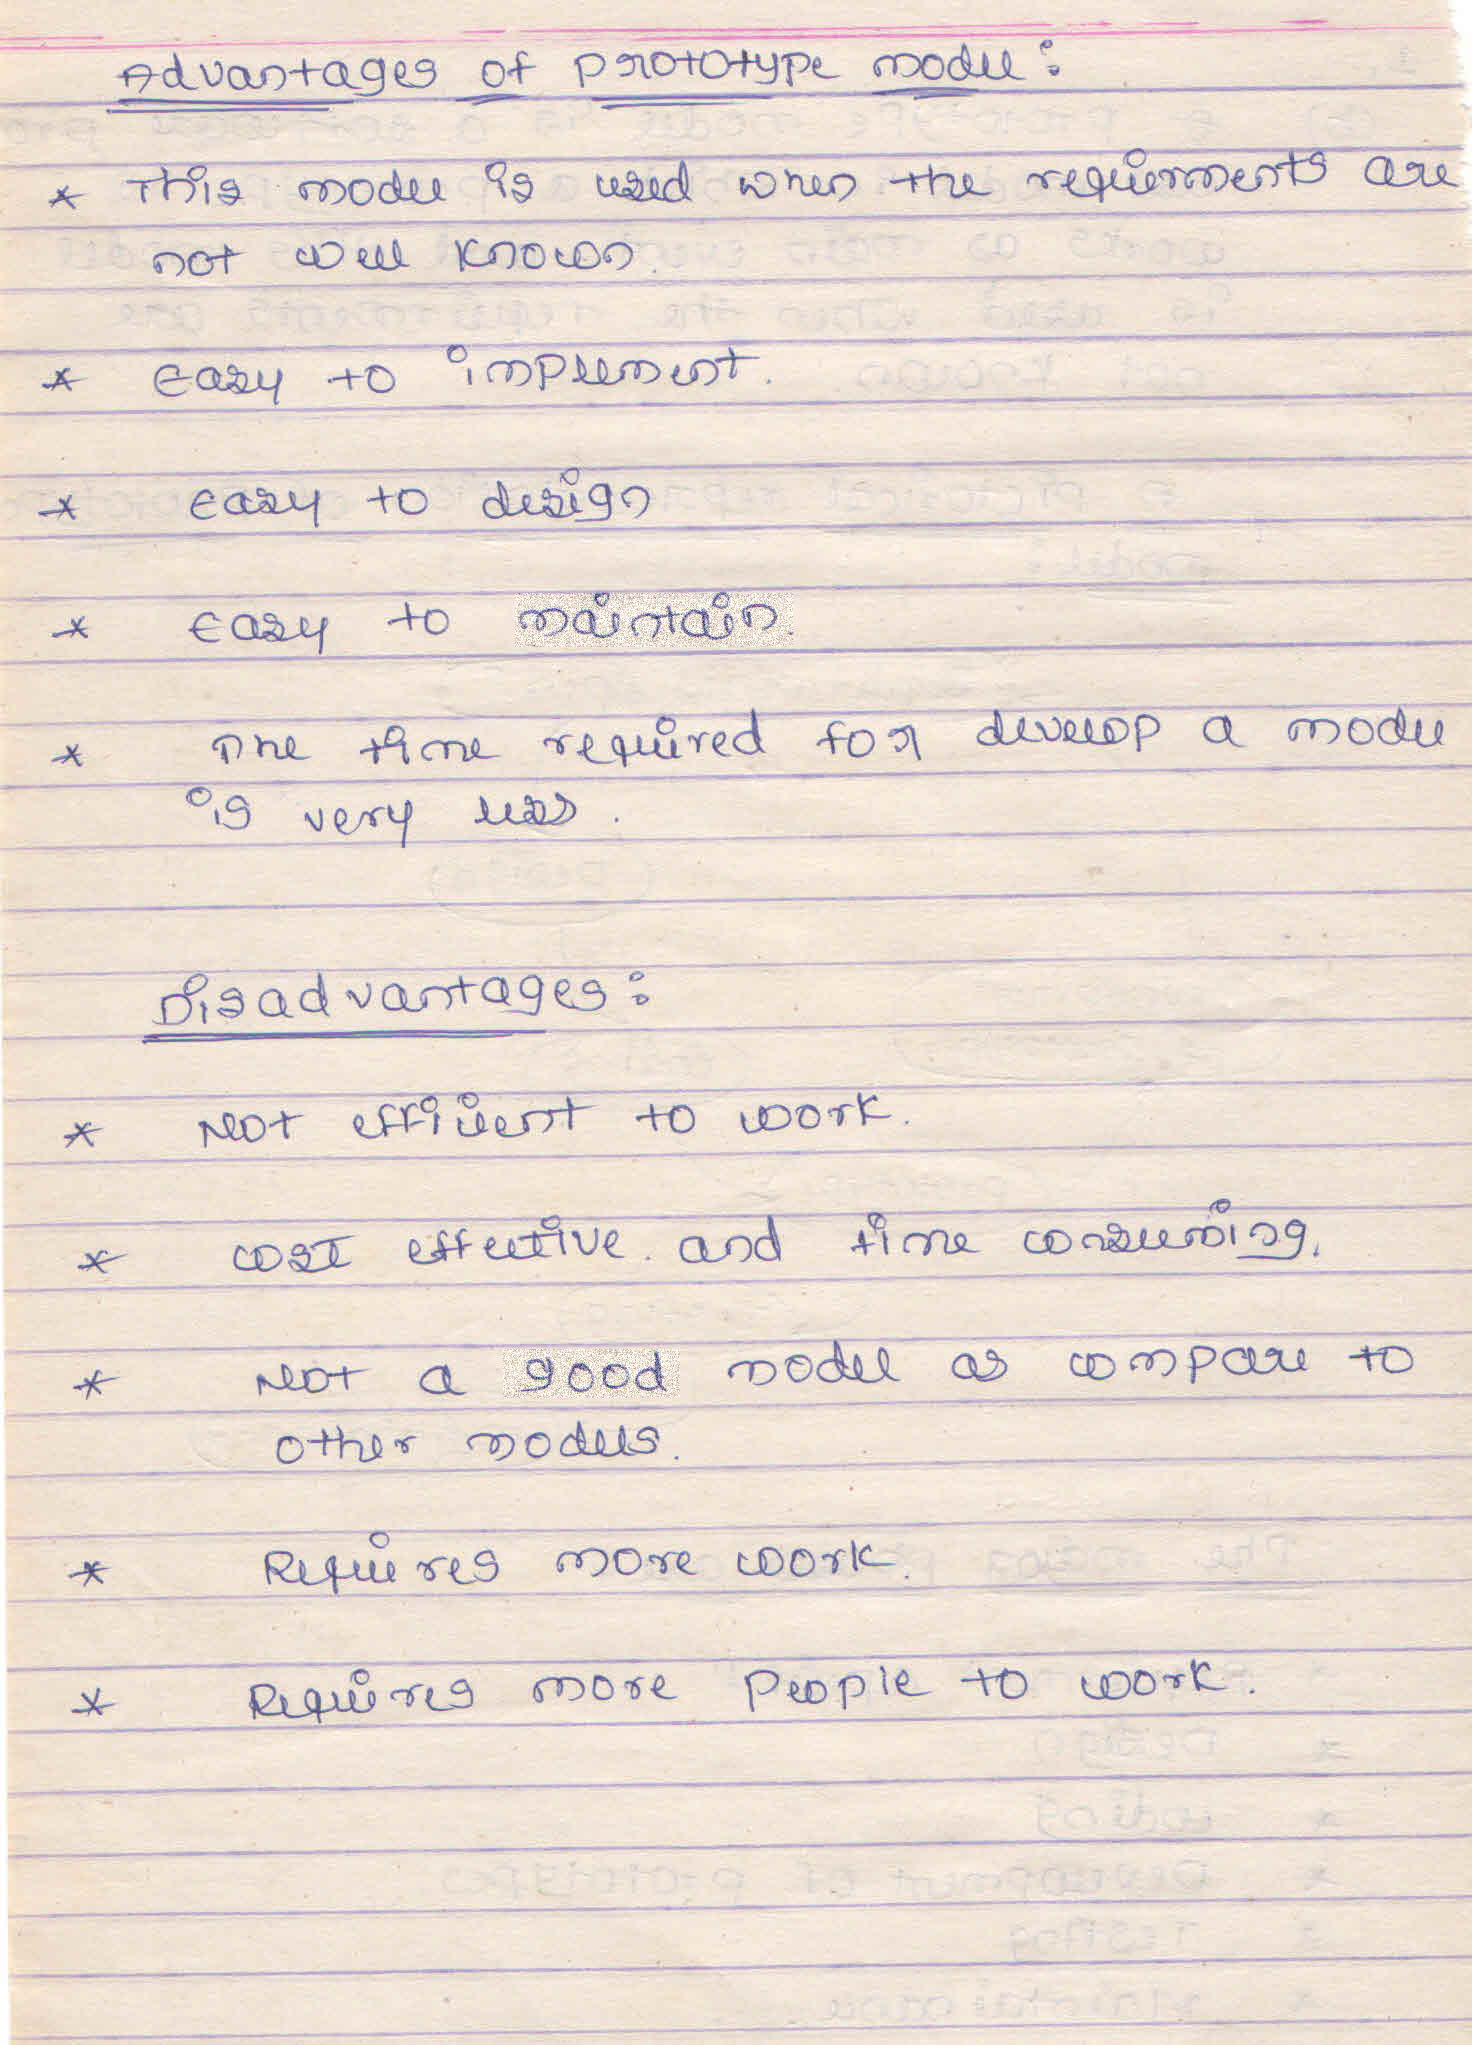 Advantages of prototype model:
* This model is used when the requirments are
not well known.
* Easy to implement.
* Easy to design
* Easy to maintain.
* The time required for develop a model
is very less.
Disadvantages:
* Not efficient to work.
* cost effective. and time consuming.
* Not a good model as compare to
other models.
* Requires more work.
* Requires more people to work.